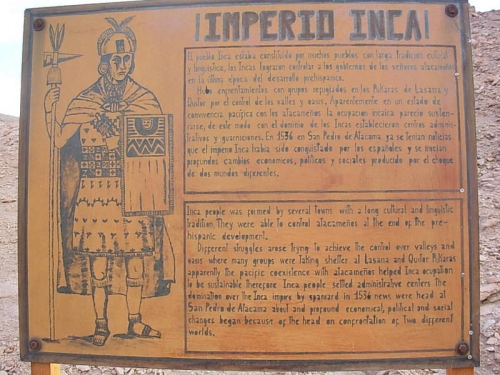 IMPERIO INCA
El pueblo Inca estaba constituido por muchos pueblos con larga tradición cultural
y lingüística, los Incas lograron controlar a los gobiernos de los señores atacameños
en la última época del desarrollo prehispánico.
Hubo enfrentamientos con grupos refugiados en los Pukaras de Lasana y
Quitor por el control de los valles y oasis. Aparentemente en un estado de
convivencia pacífica con los atacameños la ocupación incaica pareció susten-
tarse, de este modo con el dominio de los Incas establecieron centros adminis-
trativos y guarniciones. En 1536 en San Pedro de Atacama ya se tenían noticias
que el imperio Inca había sido conquistado por los españoles y se inician
profundos cambios económicos, políticos y sociales producido por el choque
de dos mundos diferentes.
Inca people was formed by several towns with a long cultural and linguistic
tradition. They were able to control atacameños at the end of the pre-
hispanic development.
Different struggles arose trying to achieve the control over valleys and
oasis where many groups were taking shelter al Lasana and Quitor Pukaras
apparently the pacific coexistence with atacameños helped Inca ocupation
to be sustainable therefore Inca people settled administrative centers the
domination over the Inca impire by spaniard in 1536 news were head at
San Pedro de Atacama about and profound economical, political and social
changes began because of the head on confrontation of two different
worlds.